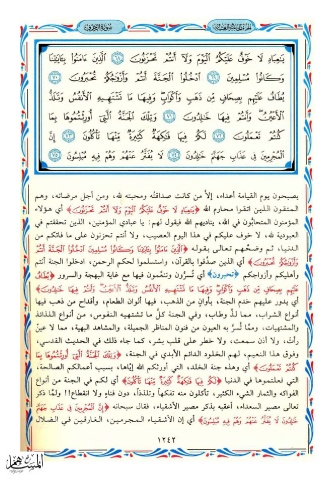 الجزء الخامس والعشرون
سورة الزخرف
يَٰعِبَادِ لَا خَوْفٌ عَلَيْكُمُ ٱلْيَوْمَ وَلَآ أَنتُمْ تَحْزَنُونَ ﴿٦٨﴾ ٱلَّذِينَ ءَامَنُوا۟ بِـَٔايَٰتِنَا
وَكَانُوا۟ مُسْلِمِينَ ﴿٦٩﴾ ٱدْخُلُوا۟ ٱلْجَنَّةَ أَنتُمْ وَأَزْوَٰجُكُمْ تُحْبَرُونَ ﴿٧٠﴾
يُطَافُ عَلَيْهِم بِصِحَافٍ مِّن ذَهَبٍ وَأَكْوَابٍ وَفِيهَا مَا تَشْتَهِيهِ ٱلْأَنفُسُ وَتَلَذُّ
ٱلْأَعْيُنُ وَأَنتُمْ فِيهَا خَٰلِدُونَ ﴿٧١﴾ وَتِلْكَ ٱلْجَنَّةُ ٱلَّتِىٓ أُورِثْتُمُوهَا بِمَا
كُنتُمْ تَعْمَلُونَ ﴿٧٢﴾ لَكُمْ فِيهَا فَٰكِهَةٌ كَثِيرَةٌ مِّنْهَا تَأْكُلُونَ ﴿٧٣﴾ إِنَّ
ٱلْمُجْرِمِينَ فِى عَذَابِ جَهَنَّمَ خَٰلِدُونَ ﴿٧٤﴾ لَا يُفَتَّرُ عَنْهُمْ وَهُمْ فِيهِ مُبْلِسُونَ ﴿٧٥﴾
يصبحون يوم القيامة أعداء، إلاَّ من كانت صداقته ومحبته لله، ومن أجل مرضاته، وهم
المتقون الذين اتقوا محارم الله ﴿يَٰعِبَادِ لَا خَوْفٌ عَلَيْكُمُ ٱلْيَوْمَ وَلَآ أَنتُمْ تَحْزَنُونَ﴾ أي هؤلاء
المؤمنون المتحابّون في الله، يناديهم الله فيقول لهم: يا عبادي المؤمنين، الذين تحققتم في
العبودية لله، لا خوف عليكم في هذا اليوم العصيب، ولا أنتم تحزنون على ما فاتكم من
الدنيا، ثم وضَّحهم تعالى بقوله ﴿ٱلَّذِينَ ءَامَنُوا۟ بِـَٔايَٰتِنَا وَكَانُوا۟ مُسْلِمِينَ ٱدْخُلُوا۟ ٱلْجَنَّةَ أَنتُمْ
وَأَزْوَٰجُكُمْ تُحْبَرُونَ﴾ أي الذين صدَّقوا بالقرآن، واستسلموا لحكم الرحمن، ادخلوا الجنة أنتم
وأهليكم وأزواجكم ﴿تحبرون﴾ أي تُسرُّون وتنعُمون فيها مع غاية البهجة والسرور ﴿يُطَافُ
عَلَيْهِم بِصِحَافٍ مِّن ذَهَبٍ وَأَكْوَابٍ وَفِيهَا مَا تَشْتَهِيهِ ٱلْأَنفُسُ وَتَلَذُّ ٱلْأَعْيُنُ وَأَنتُمْ فِيهَا خَٰلِدُونَ﴾
أي يدور عليهم خدم الجنة، بأوانٍ من الذهب، فيها ألوان الطعام، وأقداح من ذهب فيها
أنواع الشراب، مما لذَّ وطاب، وفي الجنة كلُّ ما تشتهيه النفوس، من أنواع اللذائذ
والمشتهيات، وممَّا تُسرُّ به العيون من فنون المناظر الجميلة، والمشاهد البهية، مما لا عينٌ
رأت، ولا أذن سمعت، ولا خطر على قلب بشر، كما جاء ذلك في الحديث القدسي،
وفوق هذا النعيم، لهم الخلود الدائم الأبدي في الجنة، ﴿وَتِلْكَ ٱلْجَنَّةُ ٱلَّتِىٓ أُورِثْتُمُوهَا بِمَا
كُنتُمْ تَعْمَلُونَ﴾ أي وهذه جنة الخلد، التي أورثكم الله إيَّاها، بسبب أعمالكم الصالحة،
التي عملتموها في الدنيا ﴿لَكُمْ فِيهَا فَٰكِهَةٌ كَثِيرَةٌ مِّنْهَا تَأْكُلُونَ﴾ أي لكم في الجنة من أنواع
الفواكه والثمار الشيء الكثير، تأكلون منه تفكُّهاً وتلذذاً، دون فناءٍ ولا انقطاع!! ولمَّا ذكر
تعالى مصير السعداء، أعقبه بذكر مصير الأشقياء، فقال سبحانه ﴿إِنَّ ٱلْمُجْرِمِينَ فِى عَذَابِ جَهَنَّمَ
خَٰلِدُونَ لَا يُفَتَّرُ عَنْهُمْ وَهُمْ فِيهِ مُبْلِسُونَ﴾ أي إن الأشقياء المجرمين، الغارقين في الضلال
١٢٤٢